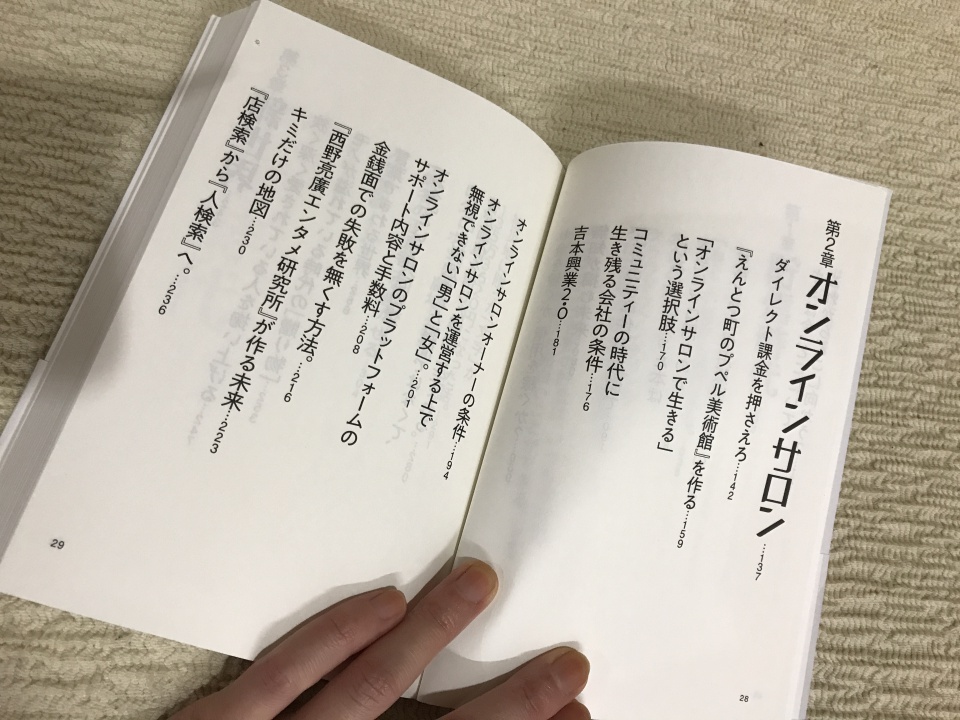 第2章 オンラインサロン…137
ダイレクト課金を押さえろ…142
『えんとつ町のプペル美術館』を作る…159
「オンラインサロンで生きる」
という選択肢…170
コミュニティーの時代に
生き残る会社の条件…176
吉本興業2.0…181
28
オンラインサロンオーナーの条件…194
オンラインサロンを運営する上で
無視できない「男」と「女」。…201
オンラインサロンのプラットフォームの
サポート内容と手数料…208
金銭面での失敗を無くす方法。…216
『西野亮廣エンタメ研究所』が作る未来…223
キミだけの地図…230
『店検索』から『人検索』へ。…236
29